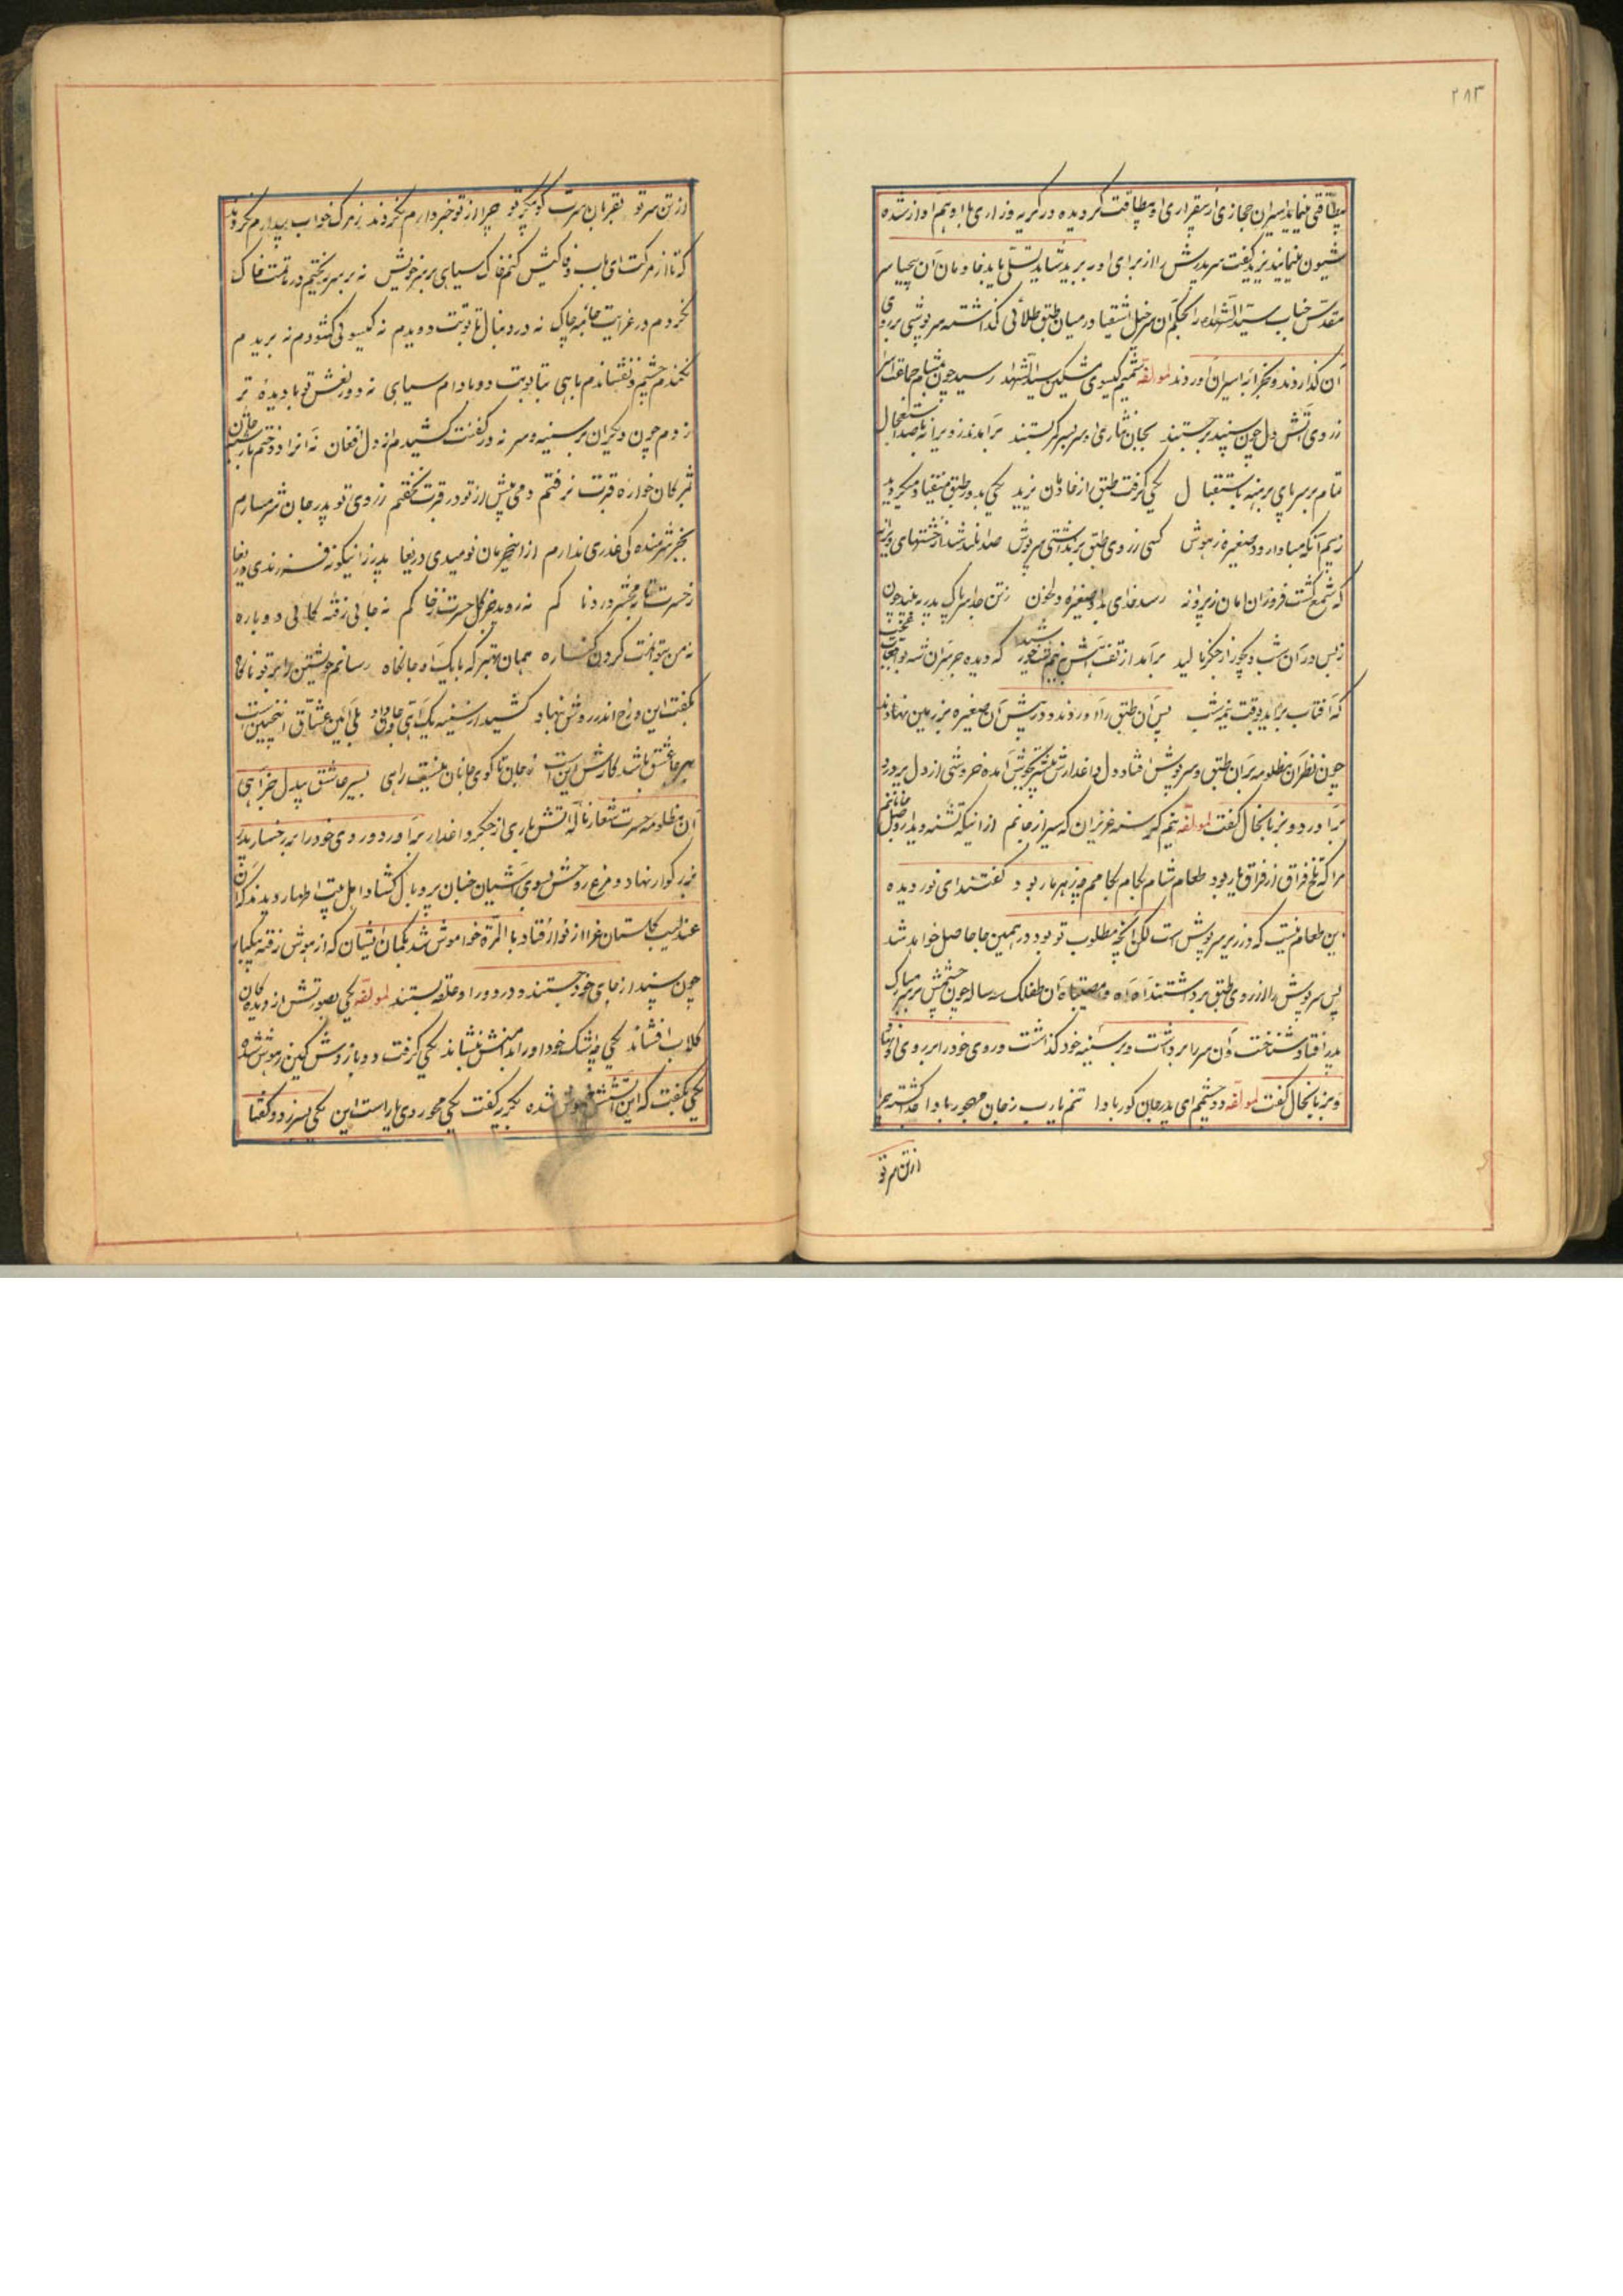 ۲۸۳
بیطاقتی مینماید اسیران حجازی از بیقراری او بیطاقت گردیده در گریه و زاری با او هم آواز شده
شیون مینمایند یزید گفت سر پدرش را از برای او برید شاید تسلی یابد خادمان آن بیحیا سر
مقدس جناب سید الشهداء را بحکم آن سرخیل اشقیا در میان طبق طلائی گذاشته سرپوشی بر روی
آن گذاردند و بخرابه اسیران آوردند لمولفه شمیم گیسوی مشکین سید الشهداء رسید چون بمشام جماعت اسرا
ز روی آتش دل چون سپند برجستند بجان نثاری او سر بسر کمر بستند برآمدند ز ویرانه با صد استعجال
تمام بر سر پای برهنه باستقبال یکی گرفت طبق از خادمان یزید یکی بدور طبق میفتاد و میگردید
ز بیم آنکه مبادا رود صغیره ز هوش کسی ز روی طبق برنداشتی سرپوش صدا بلند شد از خشتهای ویرانه
که شمع گشت فروزان امان ز پروانه رسد خدای بداد صغیره دلخون ز تن جدا سر باک پدر به بیند چون
ز بس در آن شب دیجور از جگر نالید برآمد از تف آتش به نیم شب خورشید که دیده جز سران شه بوالعجایب عجیب
که آفتاب برآید بوقت نیمه شب پس آن طبق را آوردند و در پیش آن صغیره بر زمین نهادند
چون نظر آن مظلومه بر آن طبق و سرپوش افتاد و دل داغدارش بیشتر بجوش آمده خروشی از دل پردرد
برآورد و بزبانحال گفت لمولفه نیم گرسنه عزیزان که سیر از جانم از اینکه تشنه دیدار وصل جانانم
مرا که تلخ فراق از فراق یار بود طعام شام بکام بکامم چو زهر مار بود گفتند ای نور دیده
این طعام نیست که در زیر سرپوش است لکن آنچه مطلوب تو بود در همین جا حاصل خواهد شد
پس سرپوش را از روی طبق برداشتند آه آه وامصیبتاه آن طفلک سه ساله چون چشمش بر سر مبارک
پدر افتاد شناخت و آن سر را برداشت و بر سینه خود گذاشت و روی خود را بر روی او نهاد
و بزبانحال گفت لمولفه دو چشمم ای پدر جان کور بادا تنم یارب ز جان مهجور بادا جدا گشته چرا
از تن سر تو
از تن سر تو بقربان سرت کو پیکر تو چرا از تو خبردارم نکردند ز مرگ خواب بیدارم نکردند
که تا از مرکت ای باب وفا کیش کنم خاک سیاهی بر سر خویش نه بر سر ریختم در ماتمت خاک
نکردم در عزایت جامه چاک نه در دنبال تابوتت دویدم نه گیسوئی گشودم نه بریدم
نکندم چشم و ننشاندم باهی بتابوتت دو بادام سیاهی نه دور نعش تو با دیده تر
زدم چون دیگران بر سینه و سر نه در کفنت کشیدم از دل افغان
ثمرگان خوارۀ قبرت نرفتم دمی پیش از تو در قبرت نخفتم ز روی تو پدر جان شرمسارم
بجز شرمندگی عذری ندارم ازین حرمان نومیدی دریغا پدر را اینگونه فرزندی دریغا
ز حسرت تا بمحشر در دنا کم نه روید جز گل حسرت ز خاکم نه جانی رفته کائی دوباره
نه من بتوانمت کردن کناره همان بهتر که با یک آه جانکاه رسانم خویشتن را بر تو ناگاه
بگفت این و رخ اندر رویش نهاد کشید از سینه یک آهی و جان داد بلی آئین عشاق اینچنین است
سر عاشق باشد کارش این است ز جان تا کوی جانان نیست راهی بسیر عاشق بیدل جز آهی
آن مظلومه حسرت شعار ناله آتش باری از جگر داغدار برآورد و روی خود را بر رخسار پدر
بزرگوار نهاد و مرغ روحش بسوی آشیان جنان پر و بال گشاد اهل بیت اطهار دیدند که آن
عندلیب گلستان عزا از نوا افتاد بالمره خواموش شد بگمان ایشان که از هوش رفته یکباره
چون سپند از جای خود جستند و در دور او حلقه بستند لمولفه یکی بصورتش از دیدگان
گلاب افشاند یکی چو اشک خود او را بدامنش بنشاند یکی گرفت دو بازوش کین ز هوش شده
یکی بگفت که این آتشش خموش شده یکی بگریه گفت یکی محو روی یار است این یکی بسر زد و گفتا